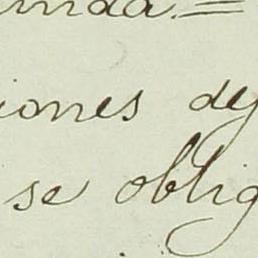 inda =
iones dej
se oblig